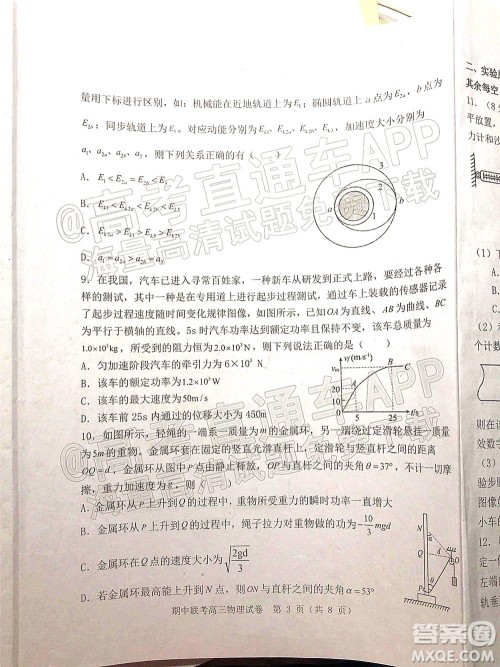 量用下标进行区别，如：机械能在近地轨道上为E₁；椭圆轨道上a点为E₂ₐ，b点为
E₂b；同步轨道上为E₃。对应动能分别为
a₁、a₂ₐ、a₂b、a₃，则下列关系正确的有（ ）
A．E₁<E₂ₐ=E₂b<E₃
D．a₁=a₂ₐ>a₂b=a₃
9．在我国，汽车已进入寻常百姓家，一种新车从研发到正式上路，要经过各种各
样的测试，其中一种是在专用道上进行起步过程测试，通过车上装载的传感器记录
了起步过程速度随时间变化规律图像，已知OA为直线、AB为曲线、BC
为平行于横轴的直线。5s时汽车功率达到额定功率且保持不变，该车总质量为
1.0×10³kg，所受到的阻力恒为2.0×10³N，则下列说法正确的是（ ）
A．匀加速阶段汽车的牵引力为6×10³N
B．该车的额定功率为1.2×10⁵W
C．该车的最大速度为50m/s
D．该车前25s内通过的位移大小为450m
10．如图所示，轻绳的一端系一质量为m的金属环，另一端绕过定滑轮悬挂一质量
为5m的重物。金属环套在固定的竖直光滑直杆上，定滑轮与竖直杆之间的距离
OQ=d，金属环从图中P点由静止释放，OP与直杆之间的夹角θ=37°，不计一切摩擦，
重力加速度为g，则（ ）
A．金属环从P上升到Q的过程中，重物所受重力的瞬时功率一直增大
B．金属环从P上升到Q的过程中，绳子拉力对重物做的功为-10/3 mgd
C．金属环在Q点的速度大小为√(2gd/3)
D．若金属环最高能上升到N点，则ON与直杆之间的夹角α=53°
期中联考高三物理试卷 第3页（共8页）
1
2
3
a
b
v/(m·s⁻¹)
vm
A
B
C
0
5
25
t/s
N
Q
O
P
二、实验
其余每空
11．（8
平放置，
力计和沙
(1)
个计数
(2)
验步
图像
12．
@高考直通车APP
海量高清试题免费下载
答案圈